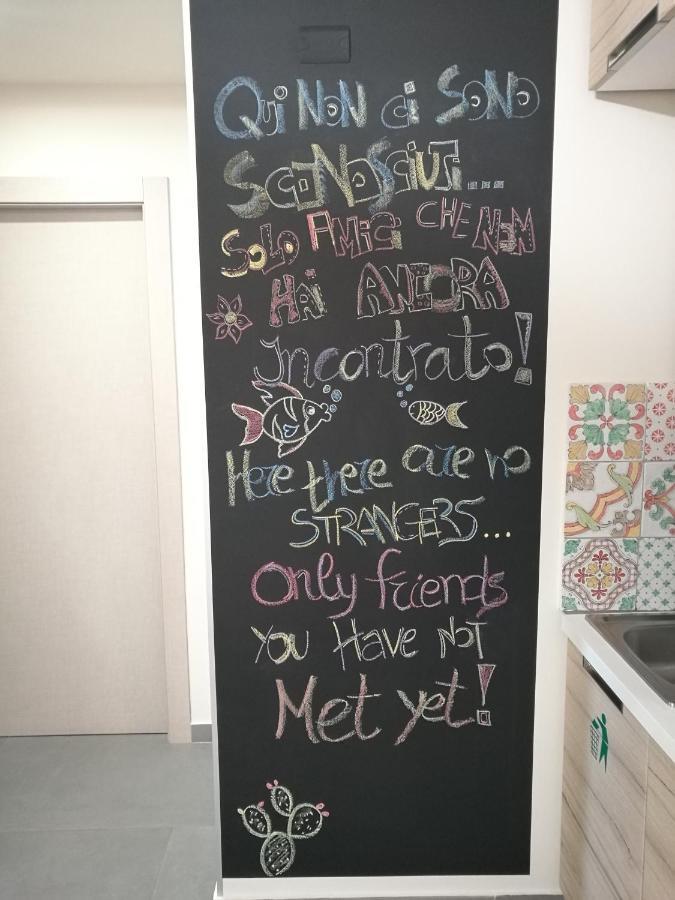 Qui NON ci SONO
SCONOSCIUTi....
SOLO AMiCi CHE NEM
HAi ANCORA
incontrato!
Here there are no
STRANGERS...
Only friends
YOU HAVE NOT
Met yet!